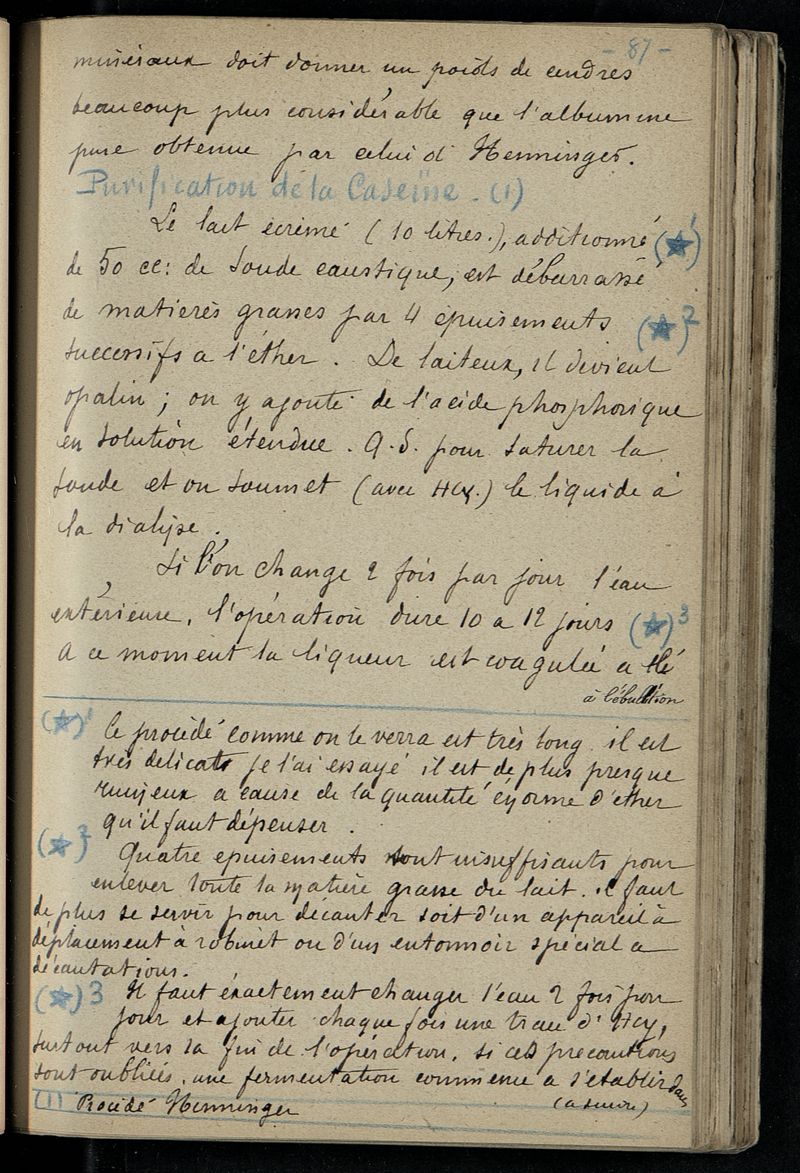 - 87 -
minéraux doit donner un poids de cendres
beaucoup plus considérable que l'albumine
pure obtenue par celui d'Henninger.
Purification de la Caseïne. (1)
Le lait écrémé (10 litres.), additionné (★)1
de 50 cc: de Soude caustique, est débarrassé
de matières grasses par 4 épuisements (★)2
successifs a l'éther. De laiteux, il devient
opalin; on y ajoute de l'acide phosphorique
en solution étendue. Q.S. pour saturer la
soude et on soumet (avec HCy.) le liquide à
la dialyse.
Si l'on change 2 fois par jour l'eau
extérieure, l'opération dure 10 a 12 jours (★)3
A ce moment la liqueur est coagulée a
à l'ébullition
(★)1 Ce procédé comme on le verra est très long. il est
très delicat je l'ai essayé il est de plus presque
ruineux a cause de la quantité énorme d'ether
qu'il faut dépenser.
(★)2 Quatre epuisements sont insuffisants pour
enlever toute la matière grasse du lait. il faut
de plus se servir pour décanter soit d'un appareil à
déplacement à robinet ou d'un entonnoir spécial a
décantations.
(★)3 Il faut éxactement changer l'eau 2 fois par
jour et ajouter chaque fois une trace d'HCy,
surtout vers la fin de l'opération. si ces précautions
sont oubliées, une fermentation commence a s'établir dans
(1) Procédé Henninger (a suivre)